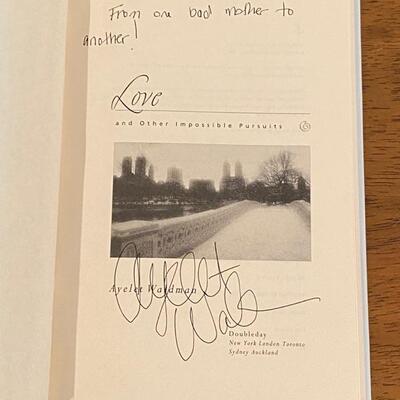 From one bad mother to
another!
Love
and Other Impossible Pursuits
Ayelet Waldman
Ayelet
Wal
Doubleday
New York London Toronto
Sydney Auckland